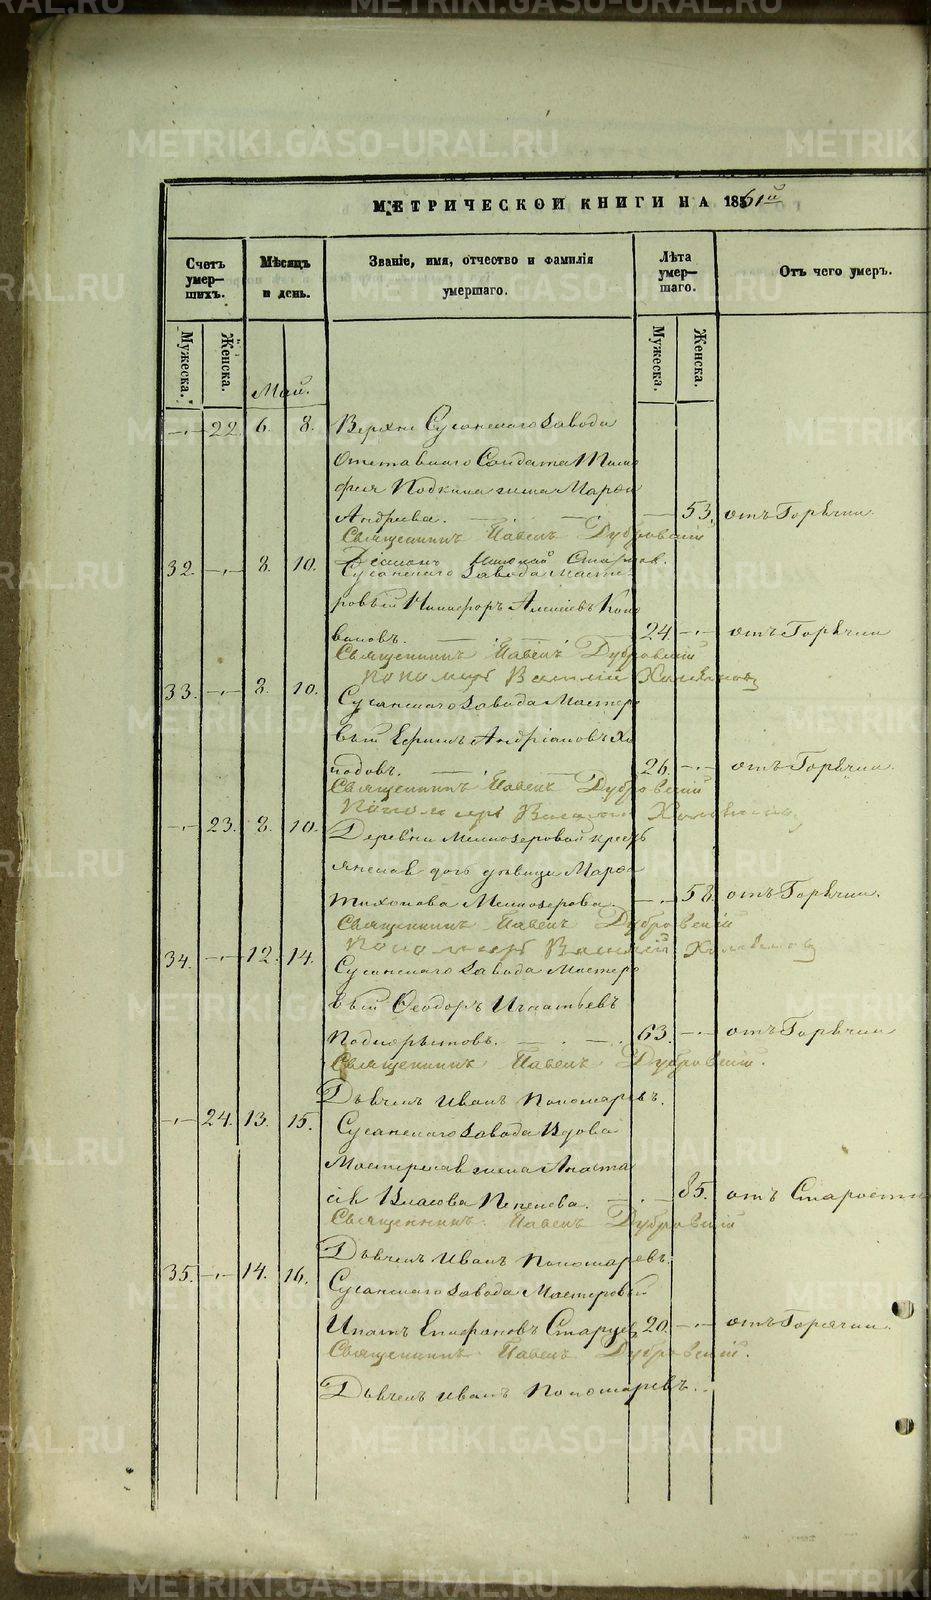 МЕТРИЧЕСКОЙ КНИГИ НА 1861й
Счетъ умер-шихъ.
Мѣсяцъ и день.
Званіе, имя, отчество и фамилія умершаго.
Лѣта умер-шаго.
Отъ чего умеръ.
Мужеска.
Женска.
Мужеска.
Женска.
Май.
22 6. 8. Верхне Сусанскаго Завода
Отставнаго Солдата Тимо
фея жена Марѳа
Андреева. 53. отъ Горячки.
Священникъ Павелъ Дубровскій
32. 8. 10. Сусанскаго Завода Масте-
ровый Никифоръ Алексѣевъ Коно
валовъ. 24. отъ Горячки
Священникъ Павелъ Дубровскій
Пономарь Василій
33. 8. 10. Сусанскаго Завода Мастеро
вый Ефимъ Андріановъ
отъ Горячки. 26.
Священникъ Павелъ Дубровскій
Пономарь Василій
23. 8. 10. Деревни Мелкозеровой кресть
янская дочь дѣвица Марѳа
Тихонова Мелкозерова. 58. отъ Горячки.
Священникъ Павелъ Дубровскій
Пономарь Василій
34. 12. 14. Сусанскаго Завода Мастеро
вый Ѳеодоръ Игнатьевъ
Подкорытовъ. 63. отъ Горячки
Священникъ Павелъ Дубровскій.
Дьячекъ Иванъ Пономаревъ.
24. 13. 15. Сусанскаго Завода Вдова
Мастерская жена Анаста
сія Власова 85. отъ Старости
Священникъ Павелъ Дубровскій
Дьячекъ Иванъ Пономаревъ.
35. 14. 16. Сусанскаго Завода Мастеровый
Ипатъ Епифановъ Старцевъ 20. отъ Горячки.
Священникъ Павелъ Дубровскій.
Дьячекъ Иванъ Пономаревъ.
METRIKI.GASO-URAL.RU